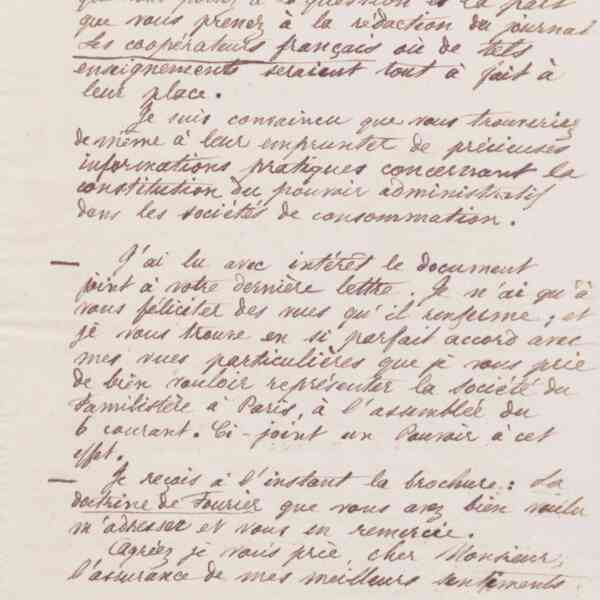 que vous prenez à la question et la part
que vous prenez à la rédaction du journal
Les coopérateurs français où de tels
enseignements seraient tout à fait à
leur place.
Je suis convaincu que vous trouveriez
de même à leur emprunter de précieuses
informations pratiques concernant la
constitution du pouvoir administratif
dans les sociétés de consommation.
— J'ai lu avec intérêt le document
joint à votre dernière lettre. Je n'ai qu'à
vous féliciter des vues qu'il renferme ; et
je vous trouve en si parfait accord avec
mes vues particulières que je vous prie
de bien vouloir représenter la Société du
Familistère à Paris, à l'assemblée du
6 courant. Ci-joint un Pouvoir à cet
effet.
— Je reçois à l'instant la brochure : La
doctrine de Fourier que vous avez bien voulu
m'adresser et vous en remercie.
Agréez je vous prie, cher Monsieur,
l'assurance de mes meilleurs sentiments